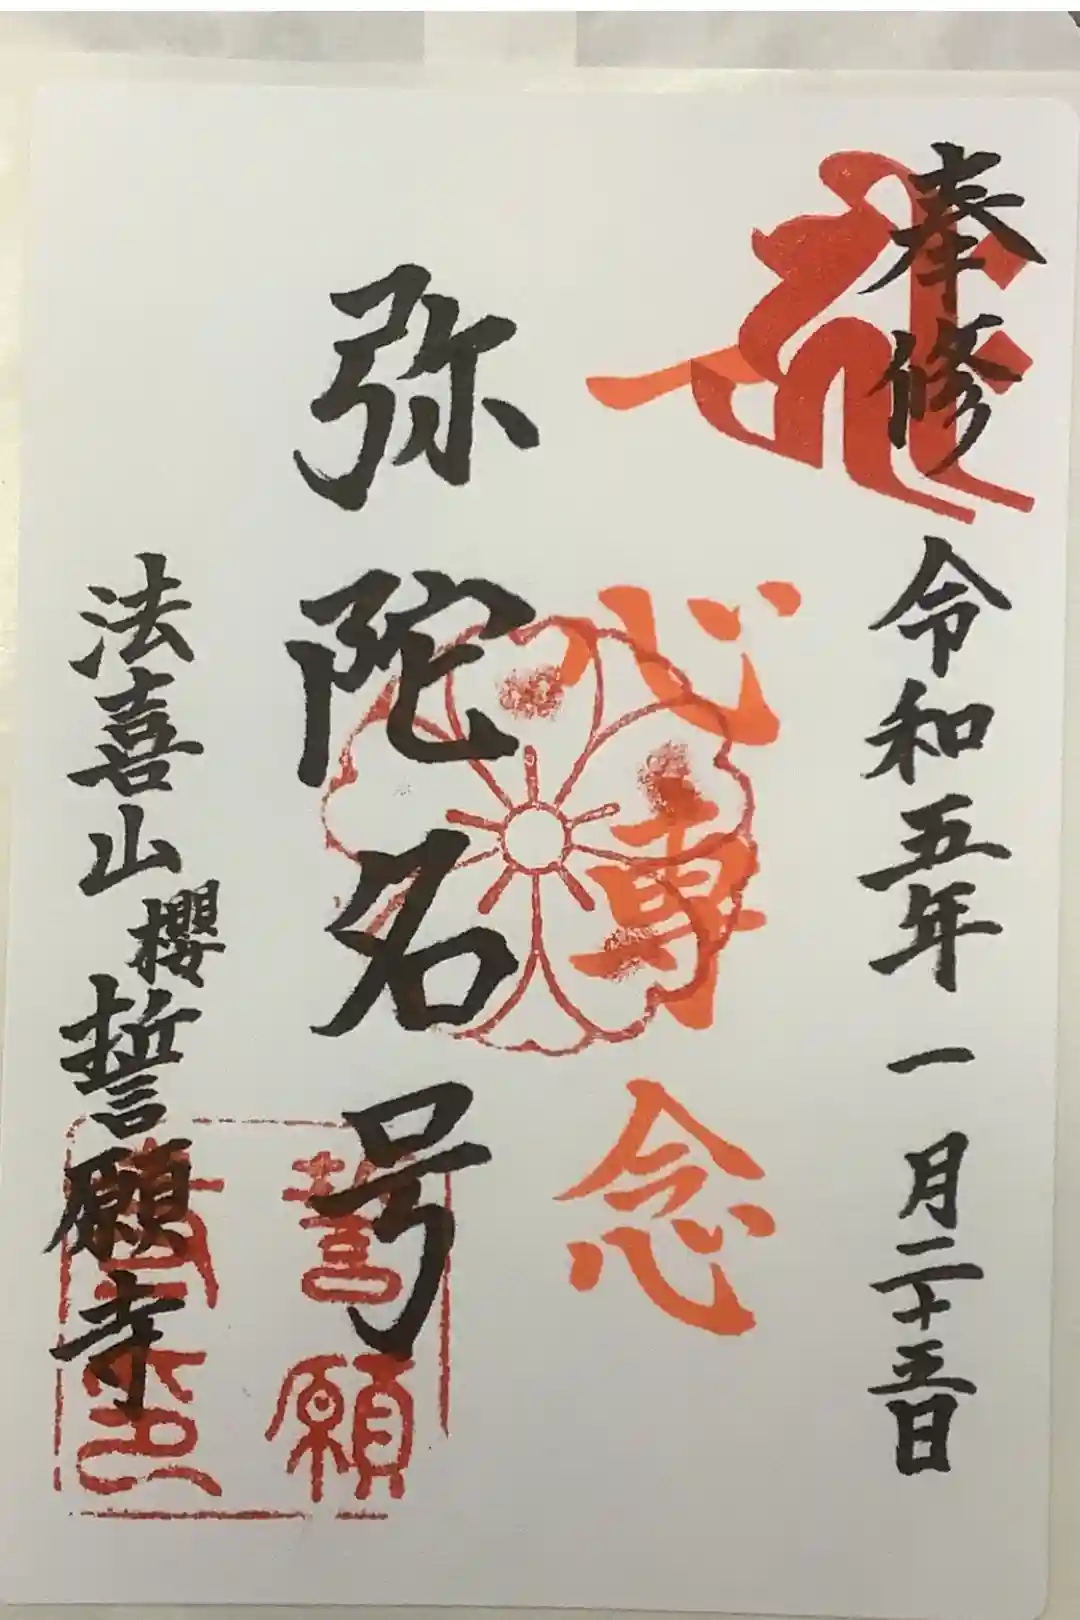 奉修 令和五年 一月二十五日
一心専念
弥陀名号
法喜山 櫻 誓願寺
誓願
寺印